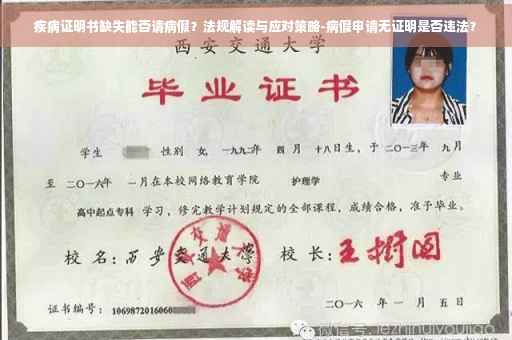 疾病证明书缺失能否请病假？法规解读与应对策略-病假申请无证明是否违法？
西安交通大学
毕业证书
学生 性别 女,一九九二年 四月 十八日生,于二〇一三年 九月
至 二〇一六年 一月在本校网络教育学院 护理学 专业
高中起点专科 学习,修完教学计划规定的全部课程,成绩合格,准予毕业。
校名:西安交通大学 校长:王树国
西安交通大学
证书编号:1069872016060
二〇一六 年 一 月 五 日
微信号: jezhinuiyoujiao